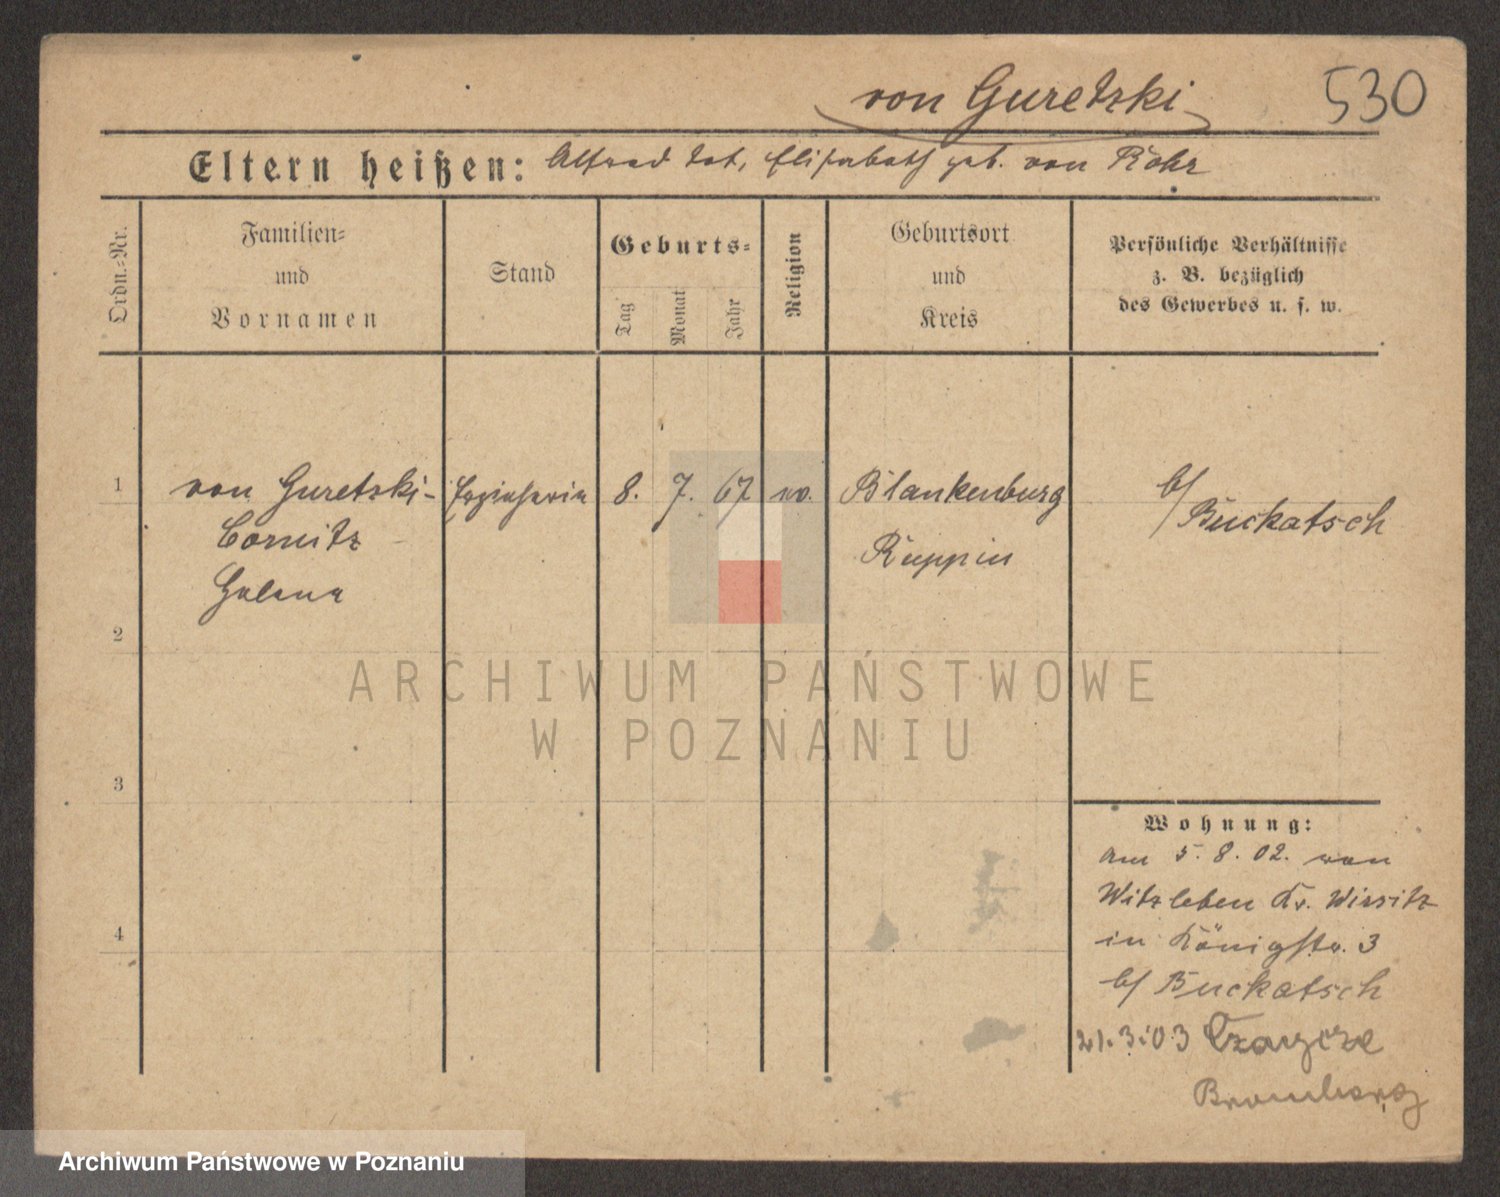 von Guretzki
530
Eltern heißen: Alfred tot, Elisabeth geb. von Rohr
Ordn.-Nr.
Familien-
und
Vornamen
Stand
Geburts-
Tag
Monat
Jahr
Religion
Geburtsort
und
Kreis
Persönliche Verhältnisse
z. B. bezüglich
des Gewerbes u. s. w.
1
von Guretski-
Cornitz
Helene
Erzieherin
8. 7. 67
ev.
Blankenburg
Ruppin
b/
Buckatsch
2
ARCHIWUM PAŃSTWOWE
W POZNANIU
3
4
Wohnung:
am 5. 8. 02. von
Witzleben Kr. Wirsitz
in Königstr. 3
b/ Buckatsch
21. 3. 03
Bromberg
Archiwum Państwowe w Poznaniu